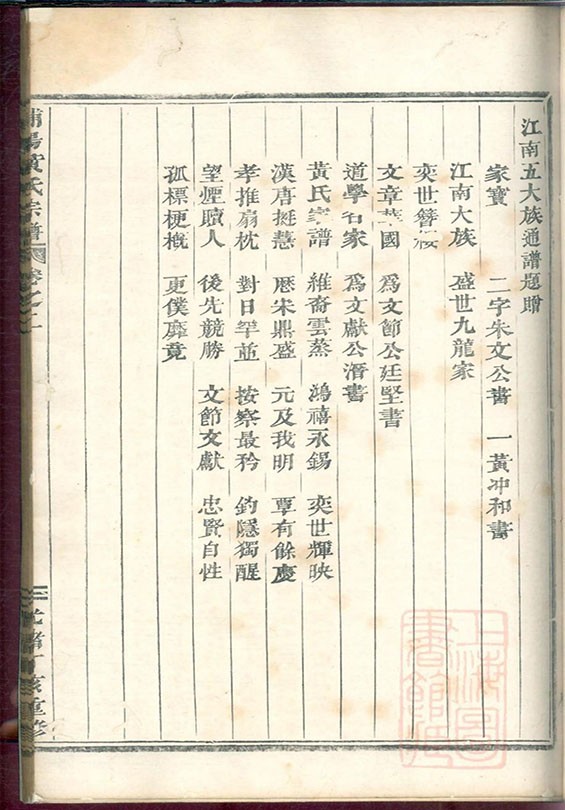 江南五大族通譜題贈
家寶 二字朱文公書 一黃冲和書
江南大族 盛世九龍家
奕世簪綬
文章華國 爲文節公廷堅書
道學名家 爲文獻公溍書
黃氏家譜 維裔雲蒸 鴻禧永錫 奕世輝映
漢唐挺蕙 歷宋鼎盛 元及我明 覃有餘慶
孝推扇枕 對日罕並 按察最矜 釣隱獨醒
望煙贖人 後先競勝 文節文獻 忠賢自性
孤標梗槪 更僕靡竟
浦陽黃氏宗譜 卷之二
光緒丁亥重修
上海圖書館藏